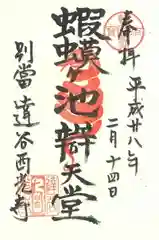 奉拝 平成廿八年
二月十四日
蝦蟆ヶ池辯天堂
別當達谷西光寺